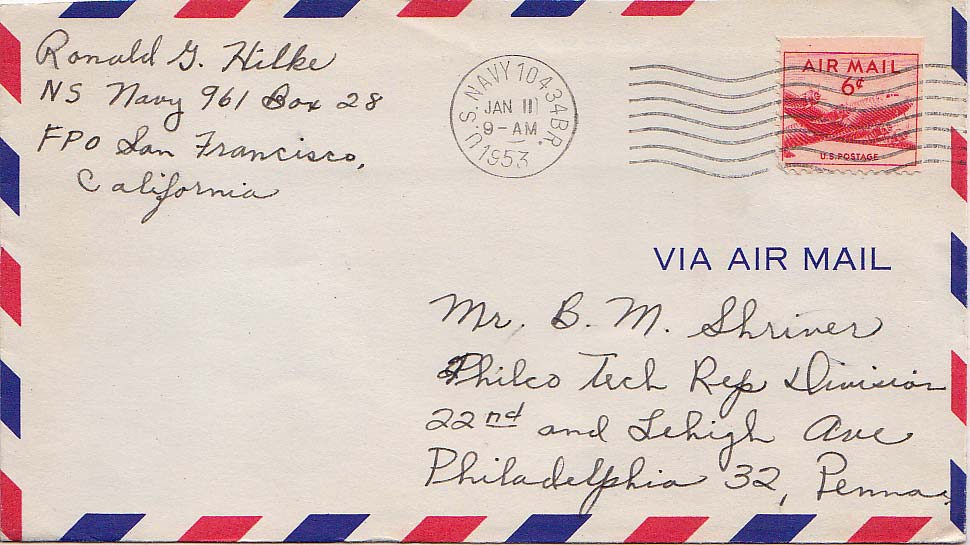 Ronald G. Hilke
NS Navy 961 Box 28
FPO San Francisco,
California
U.S. NAVY 10434 BR.
JAN 11
9-AM
1953
AIR MAIL
6¢
U.S. POSTAGE
VIA AIR MAIL
Mr. B. M. Shriver
Philco Tech Rep Division
22nd and Lehigh Ave
Philadelphia 32, Penna.